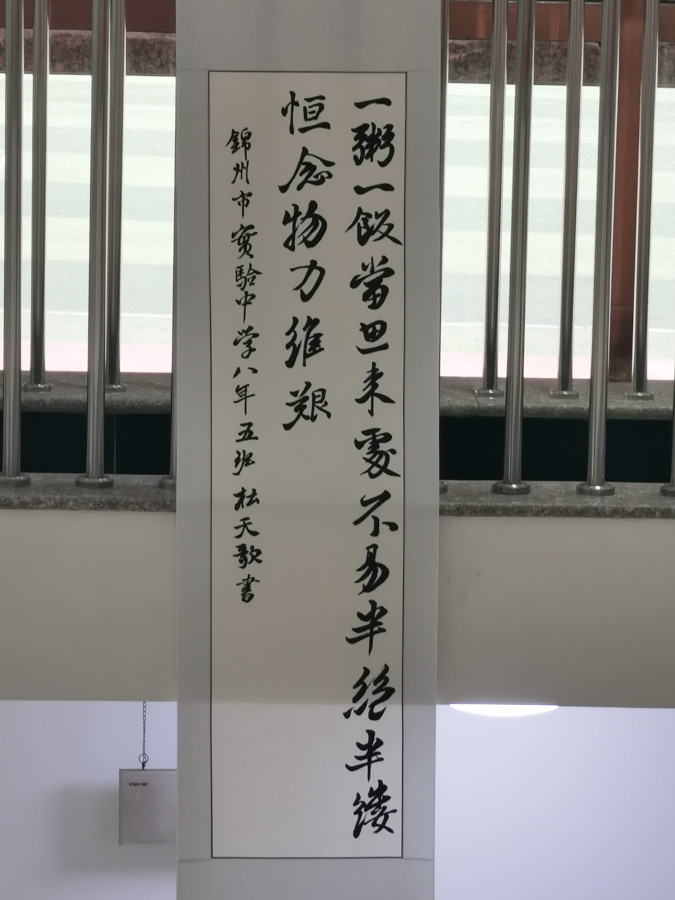 一粥一飯當思来處不易半絲半缕
恒念物力維艱
錦州市實驗中学八年五班杜天歌書